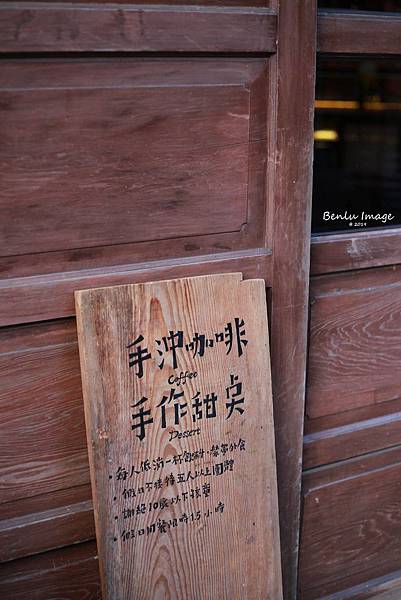 手沖咖啡
Coffee
手作甜點
Dessert
• 每人低消一杯飲料,禁帶外食
• 假日不接待五人以上團體
• 謝絕10歲以下孩童
• 假日用餐限時1.5小時
Benlu Image
© 2019